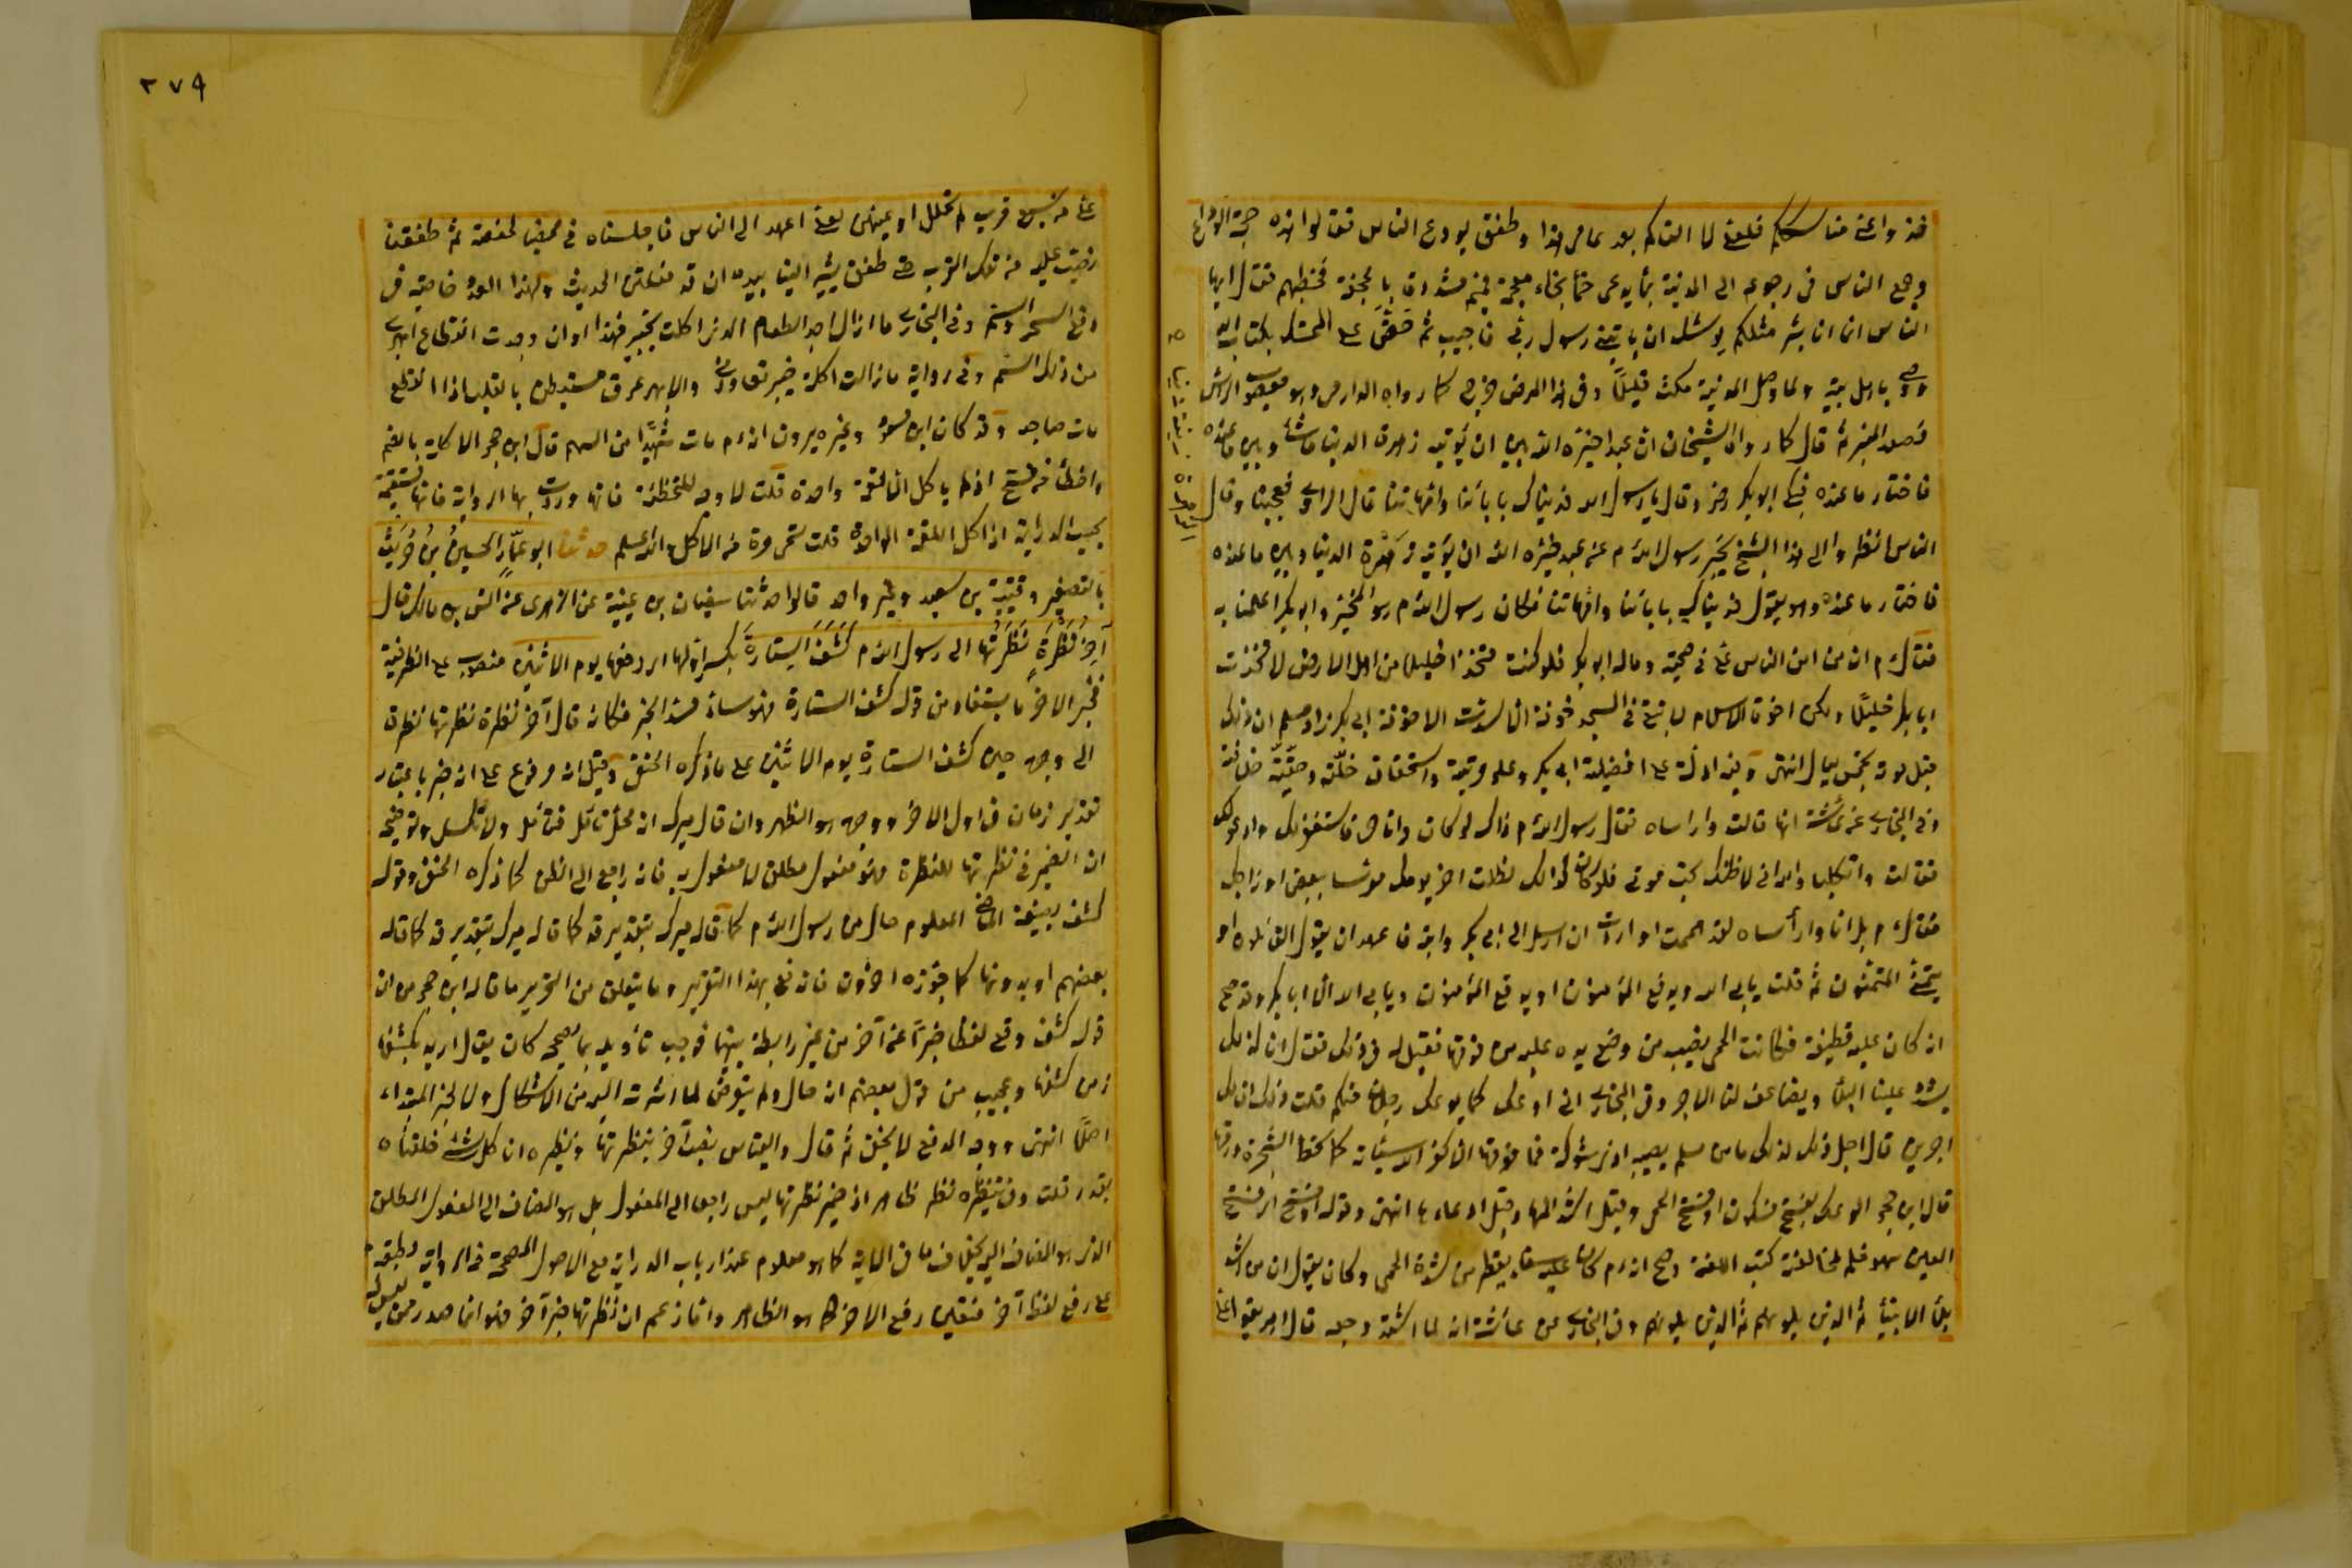 فخذوا عني مناسككم فلعلي لا القاكم بعد عامي هذا وطفق يودع الناس فقالوا هذه حجة الوداع
وجمع الناس في رجوعه الى المدينة بماء يدعى خما بخاء معجمة فميم مشددة بالجحفة فخطبهم فقال ايها
الناس انما انا بشر مثلكم يوشك ان ياتيني رسول ربي فاجيب ثم حض على التمسك بكتاب الله
ووصى باهل بيته ولما وصل المدينة مكث قليلا وفي هذا المرض خرج كما رواه الدارمي وهو معصوب الراس
فصعد المنبر ثم قال كما رواه الشيخان ان عبدا خيره الله بين ان يؤتيه زهرة الدنيا ما شاء وبين ما عنده
فاختار ما عنده فبكى ابو بكر رضي وقال يا رسول الله فديناك بابائنا وامهاتنا قال الراوي فعجبنا وقال
الناس انظروا الى هذا الشيخ يخبر رسول الله م عن عبد خيره الله ان يؤتيه زهرة الدنيا وبين ما عنده
فاختار ما عنده وهو يقول فديناك بابائنا وامهاتنا فكان رسول الله م هو المخير وابو بكر اعلمنا به
فقال م ان من امن الناس علي في صحبته وماله ابو بكر فلو كنت متخذا خليلا من اهل الارض لاتخذت
ابا بكر خليلا ولكن اخوة الاسلام لا تبقى في المسجد خوخة الا سدت الا خوخة ابي بكر زاد مسلم ان ذلك
قبل موته بخمس ليال انتهى وفيه ادلة على افضلية ابي بكر وعلو مرتبته واستحقاق خلته وحقية خلافته
وفي البخاري عن عائشة انها قالت وا راساه فقال رسول الله م ذاك لو كان وانا حي فاستغفر لك وادعو لك
فقالت واثكلياه والله اني لاظنك تحب موتي فلو كان ذلك لظللت اخر يومك معرسا ببعض ازواجك
فقال م بل انا وا رأساه لقد هممت او اردت ان ارسل الى ابي بكر وابنه فاعهد ان يقول القائلون او
يتمنى المتمنون ثم قلت يابى الله ويدفع المؤمنون او يدفع المؤمنون ويابى الله الا ابا بكر وقد صح
انه كان عليه قطيفة فكانت الحمى تصيب من وضع يده عليه من فوقها فقيل له في ذلك فقال انا كذلك
يشدد علينا البلاء ويضاعف لنا الاجر وفي البخاري اني اوعك كما يوعك رجلان منكم قلت ذلك ان لك
اجرين قال اجل ذلك كذلك ما من مسلم يصيبه اذى شوكة فما فوقها الا كفر الله سيئاته كما تحط الشجرة ورقها
قال ابن حجر الوعك بفتح فسكون او فتح الحمى وقيل اشد المها وقيل ارعادها انتهى وقوله او فتح اي فتح
العين سهو قلم لمخالفته كتب اللغة وصح انه م كان عليه سقاء يقطر من شدة الحمى وكان يقول ان من اشد
بلاء الانبياء ثم الذين يلونهم ثم الذين يلونهم وفي البخاري عن عائشة انه لما اشتد وجعه قال اهريقوا علي
٢٧٩
علي من سبع قرب لم تحلل اوكيتهن لعلي اعهد الى الناس فاجلسناه في مخضب لحفصة ثم طفقنا
نصب عليه من تلك القرب حتى طفق يشير الينا بيده ان قد فعلتن الحديث ولهذا العدد خاصية في
دفع السحر والسم وفي البخاري ما ازال اجد الم الطعام الذي اكلت بخيبر فهذا اوان وجدت انقطاع ابهري
من ذلك السم وفي رواية ما زالت اكلة خيبر تعاودني والابهر عرق مستبطن بالقلب اذا انقطع
مات صاحبه وقد كان ابن مسعود وغيره يرون انه م مات شهيدا من السم قال ابن حجر الاكلة بالضم
واخطأ من فتح اذ لم ياكل الا لقمة واحدة قلت لا وجه للتخطئة فانها وردت بها الرواية فانها مستقيمة
بحسب الدراية اذ اكل اللقمة الواحدة قلت مرة من الاكل والله اعلم حدثنا ابو عمار الحسين بن حريث
بالتصغير وقتيبة بن سعيد وغير واحد قالوا حدثنا سفيان بن عيينة عن الزهري عن انس بن مالك قال
آخر نظرة نظرتها الى رسول الله م كشف الستارة بكسر اولها اي رفعها يوم الاثنين منصوب على الظرفية
فخبر الاخر ما يستفاد من قوله كشف الستارة فهو ساد مسد الخبر فكانه قال آخر نظرة نظرتها نظرة
الى وجهه حين كشف الستارة يوم الاثنين على ما ذكره الحنفي وقيل انه مرفوع على انه خبر باعتبار
تقدير زمان في اول الاخر ووجهه هو الظهر وان قال ميرك انه محل تامل فتامل ولا تكسل وتوضيحه
ان الضمير في نظرتها للنظرة فهو مفعول مطلق لا مفعول به فانه راجع الى النظرة كما ذكره الحنفي وقوله
كشف بصيغة الماضي المعلوم حال من رسول الله م كما قاله ميرك بتقدير قد كما قاله ميرك بتقدير قد كما قاله
بعضهم او بدونها كما جوزه اخرون فاندفع بهذا التقرير وما يتعلق من التحرير ما قاله ابن حجر من ان
قوله كشف وقع لفظا خبرا عن آخر من غير رابطة بينهما فوجب تأويله بما يصححه كان يقال اريد بكشفها
زمن كشفها وعجيب من قول بعضهم انه حال ولم يتعرض لما اشرت اليه من الاشكال ولا لخبر المبتداء
اصلا انتهى ووجه الدفع لا يخفى ثم قال والقياس نصب آخر بنظرتها ونظيره انا كل شيء خلقناه
بقدر قلت وفي تنظيره نظر ظاهر اذ ضمير نظرتها ليس راجعا الى المفعول بل هو المضاف الى المفعول المطلق
الذي هو المضاف اليه بخلاف ما في الاية كما هو معلوم عند ارباب الدراية مع الاصول المصححة في الرواية مطبقة
على رفع لفظ آخر فتعين رفع الاخر كما هو الظاهر واما زعم ان نظرتها خبر آخر فهو انما صدر ممن